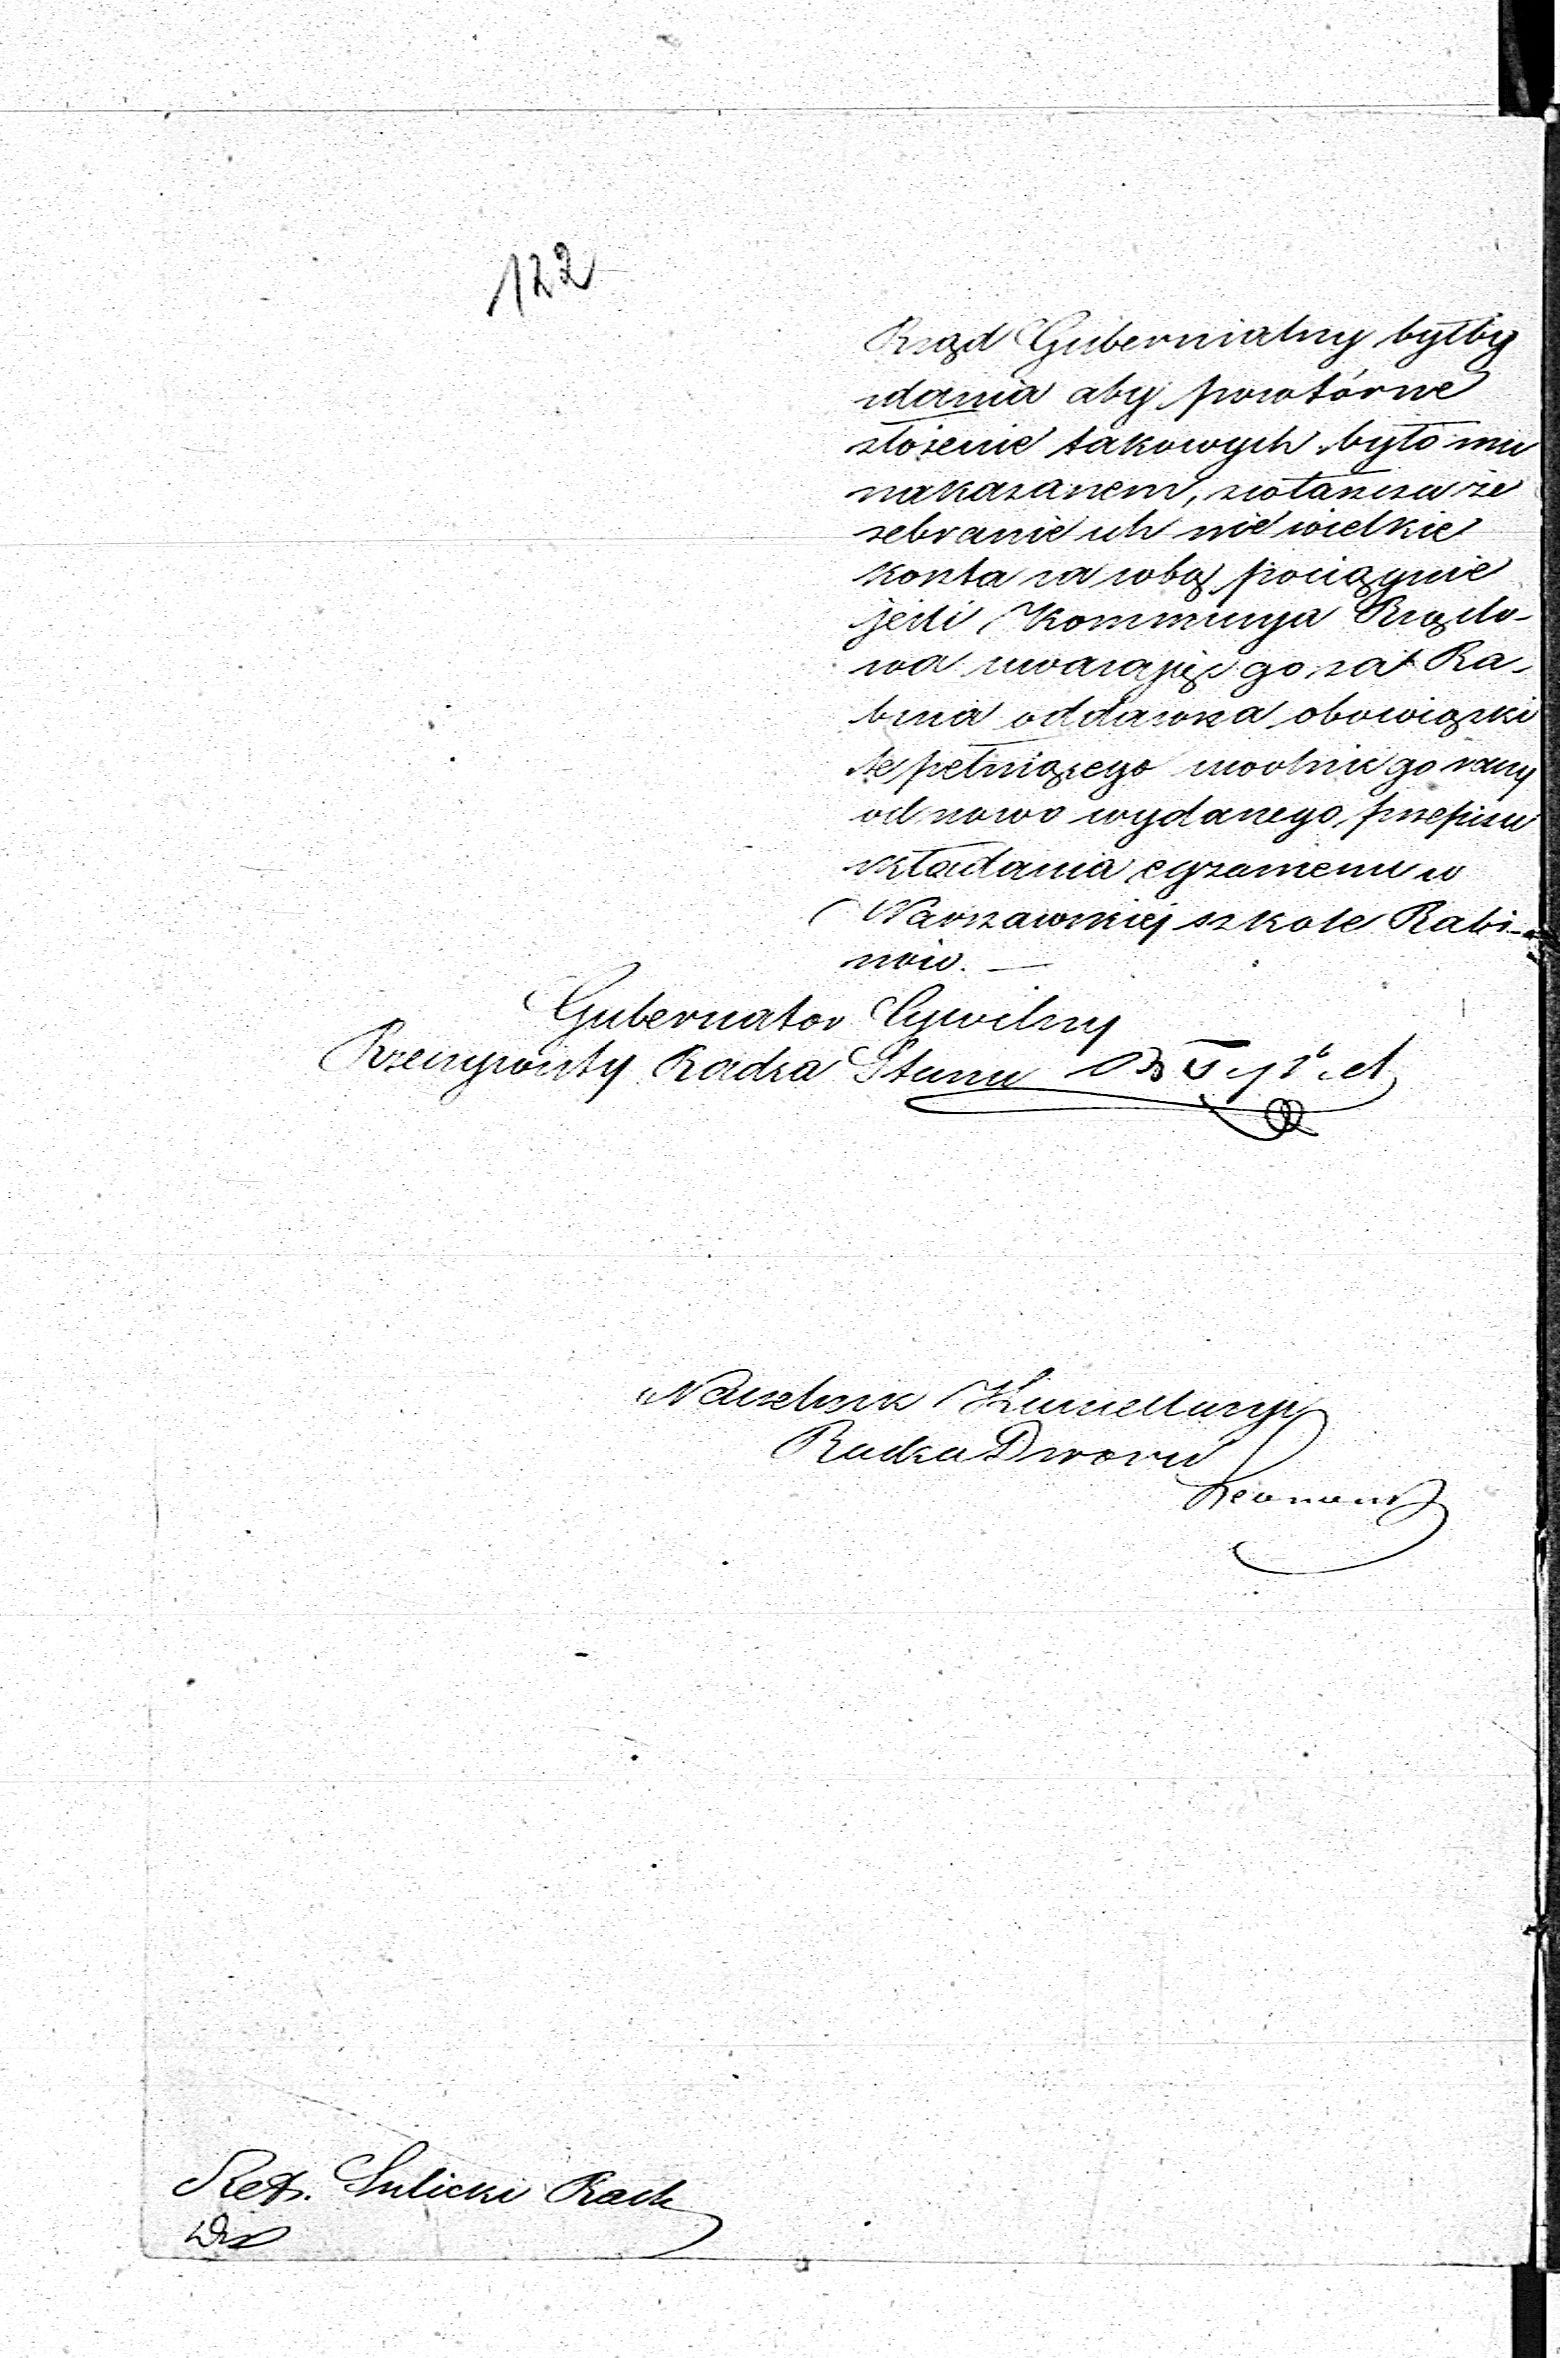 122
Rząd Gubernialny byłby
zdania aby powtórne
złożenie takowych było mu
nakazanem, zwłaszcza że
zebranie ich nie wielkie
koszta za sobą pociągnie
jeśli Kommissya Rządo-
wa uważając go za Ra-
bina oddawna obowiązki
te pełniącego uwolnić go raczy
od nowo wydanego przepisu
składania egzamenu w
Warszawskiej szkole Rabi-
nów. —
Gubernator Cywilny
Rzeczywisty Radca Stanu
Naczelnik Kancellaryi
Radca Dworu
Sulicki Radz